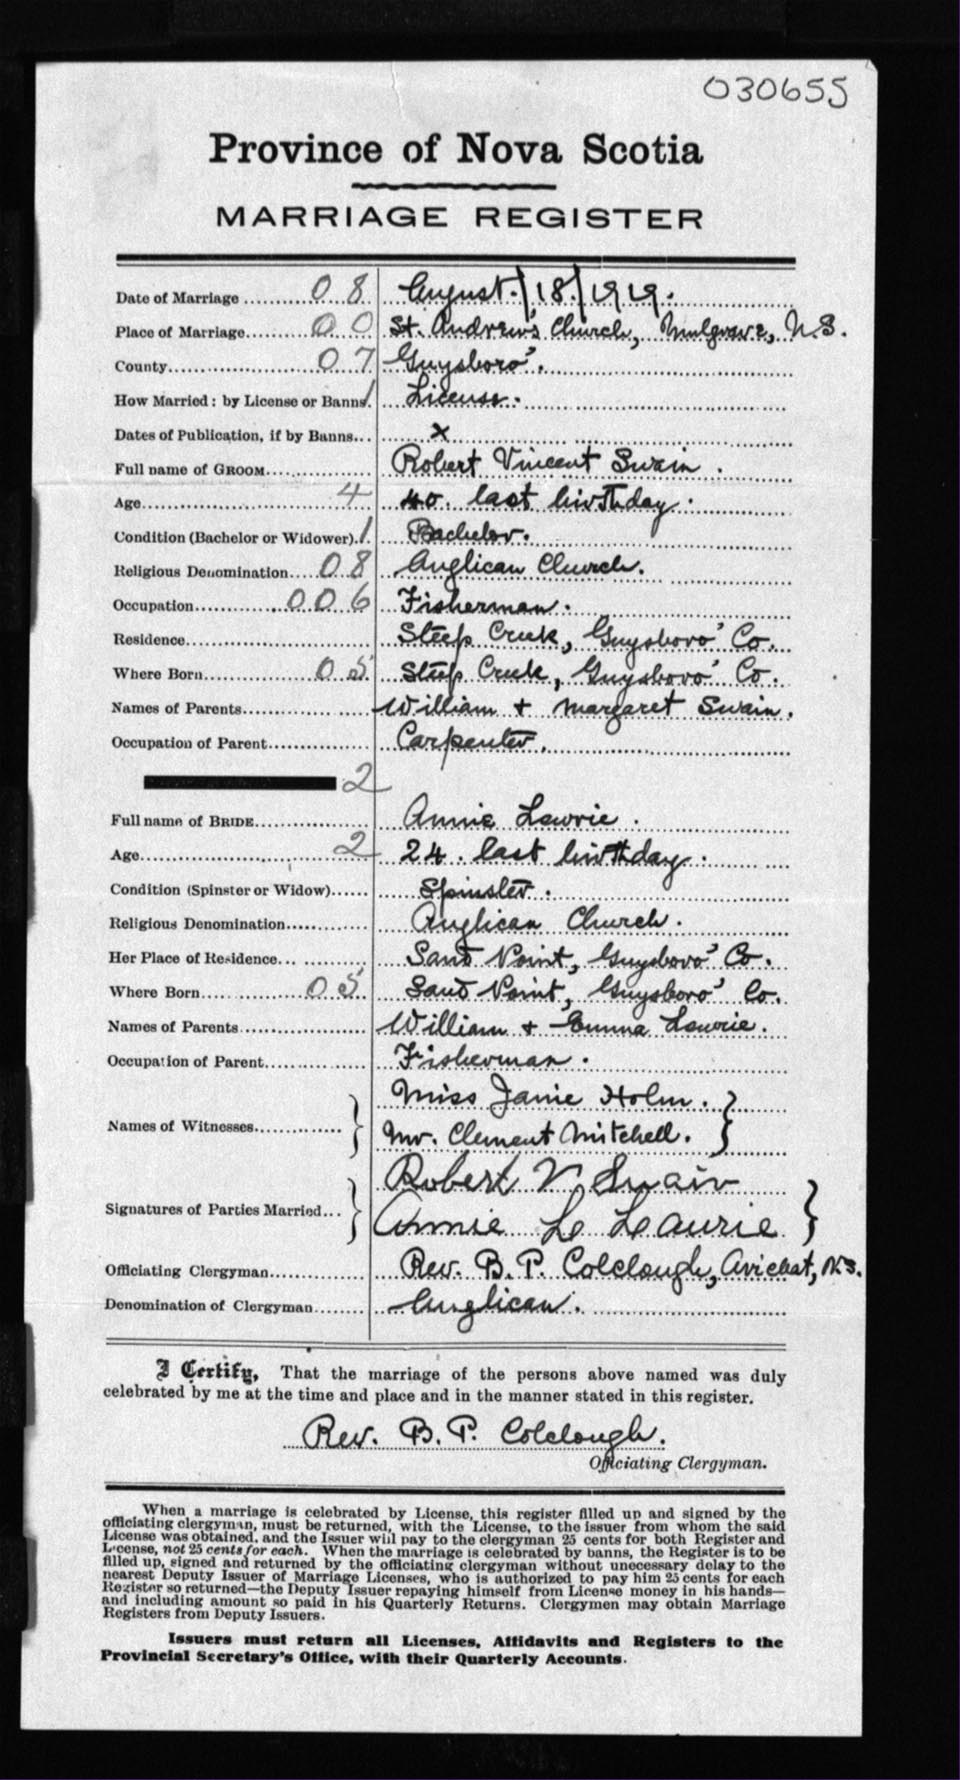 030655
Province of Nova Scotia
MARRIAGE REGISTER
Date of Marriage 08 August/18/1919.
Place of Marriage 00 St. Andrew's Church, Mulgrave, N.S.
County 07 Guysboro'.
How Married: by License or Banns 1 License.
Dates of Publication, if by Banns x
Full name of GROOM Robert Vincent Swain.
Age 4 40 last birthday.
Condition (Bachelor or Widower). 1 Bachelor.
Religious Denomination 08 Anglican Church.
Occupation 006 Fisherman.
Residence Steep Creek, Guysboro' Co.
Where Born 05 Steep Creek, Guysboro' Co.
Names of Parents William + Margaret Swain.
Occupation of Parent Carpenter.
2
Full name of BRIDE Annie Lawrie.
Age 2 24. last birthday.
Condition (Spinster or Widow) Spinster.
Religious Denomination Anglican Church.
Her Place of Residence Sand Point, Guysboro' Co.
Where Born 05 Sand Point, Guysboro' Co.
Names of Parents William + Emma Lawrie.
Occupation of Parent Fisherman.
Miss Janie Holm.
Names of Witnesses
Mr. Clement Mitchell.
Robert V Swain
Signatures of Parties Married
Annie L Laurie
Officiating Clergyman Rev. B. P. Colclough, Arichat, N.S.
Denomination of Clergyman Anglican.
I Certify, That the marriage of the persons above named was duly
celebrated by me at the time and place and in the manner stated in this register.
Rev. B. P. Colclough.
Officiating Clergyman.
When a marriage is celebrated by License, this register filled up and signed by the
officiating clergyman, must be returned, with the License, to the issuer from whom the said
License was obtained, and the Issuer will pay to the clergyman 25 cents for both Register and
License, not 25 cents for each. When the marriage is celebrated by banns, the Register is to be
filled up, signed and returned by the officiating clergyman without unecessary delay to the
nearest Deputy Issuer of Marriage Licenses, who is authorized to pay him 25 cents for each
Register so returned—the Deputy Issuer repaying himself from License money in his hands—
and including amount so paid in his Quarterly Returns. Clergymen may obtain Marriage
Registers from Deputy Issuers.
Issuers must return all Licenses, Affidavits and Registers to the
Provincial Secretary's Office, with their Quarterly Accounts.